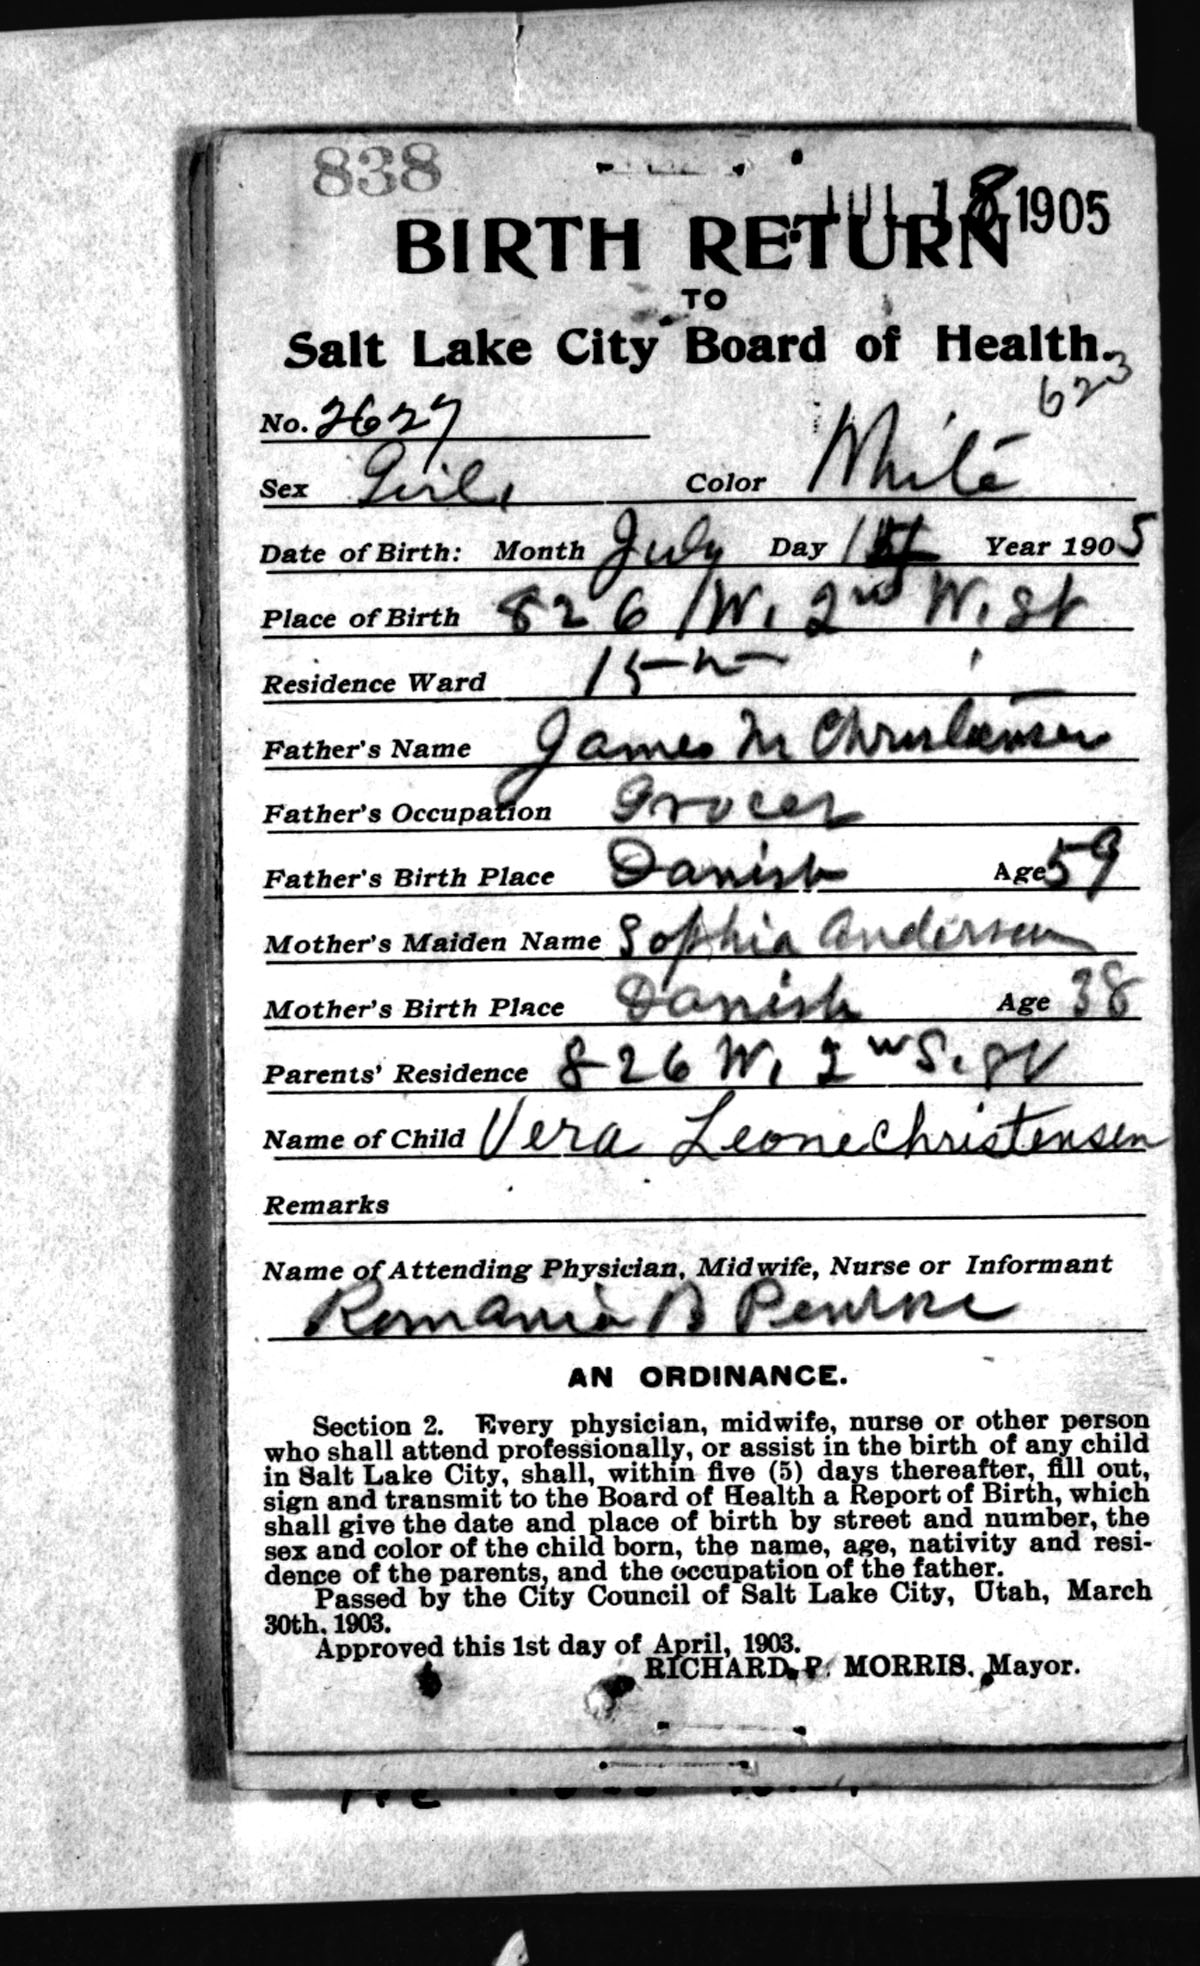 838
JUL 18 1905
BIRTH RETURN
TO
Salt Lake City Board of Health.
623
No. 2627
Sex Girl, Color White
Date of Birth: Month July Day Year 1905
Place of Birth 826 W. 2nd W. St
Residence Ward 15
Father's Name James M Christensen
Father's Occupation Grocer
Father's Birth Place Danish Age 59
Mother's Maiden Name Sophia Andersen
Mother's Birth Place Danish Age 38
Parents' Residence 826 W. 2 S. St
Name of Child Vera Leone Christensen
Remarks
Name of Attending Physician, Midwife, Nurse or Informant
Romania B Penrose
AN ORDINANCE.
Section 2. Every physician, midwife, nurse or other person
who shall attend professionally, or assist in the birth of any child
in Salt Lake City, shall, within five (5) days thereafter, fill out,
sign and transmit to the Board of Health a Report of Birth, which
shall give the date and place of birth by street and number, the
sex and color of the child born, the name, age, nativity and resi-
dence of the parents, and the occupation of the father.
Passed by the City Council of Salt Lake City, Utah, March
30th, 1903.
Approved this 1st day of April, 1903.
RICHARD P. MORRIS, Mayor.